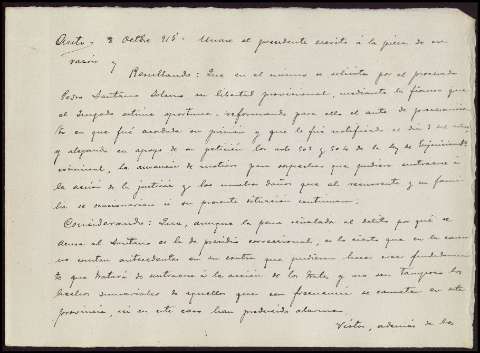 Auto.- 8 Octbre 915. Unase el precedente escrito á la pieza de su
razón y
Resultando: Que en el mismo se solicita por el procesado
Pedro Santano Solano su libertad provisional, mediante la fianza que
el Juzgado estime oportuna, reformando para ello el auto de procesamien
to en que fué acordada su prisión y que le fué notificado el dia 3 del
y alegando en apoyo de su petición los arts 503 y 504 de la ley de Enjuiciamto
criminal, la ausencia de motivos para sospechar que pudiera sustraerse á
la acción de la justicia y los muchos daños que al recurrente y su fami
lia se ocasionarian si su presente situación continuara.
Considerando: Que, aunque la pena señalada al delito por qué se
acusa al Santano es la de presidio correccional, es lo cierto que en la causa
no constan antecedentes en su contra que pudieran hacer creer fundadamen
te que tratará de sustraerse á la acción de los Trales y no son tampoco los
hechos sumariales de aquellos que con frecuencia se cometan en esta
provincia, ni en este caso han producido alarma.
Vistos, además de los